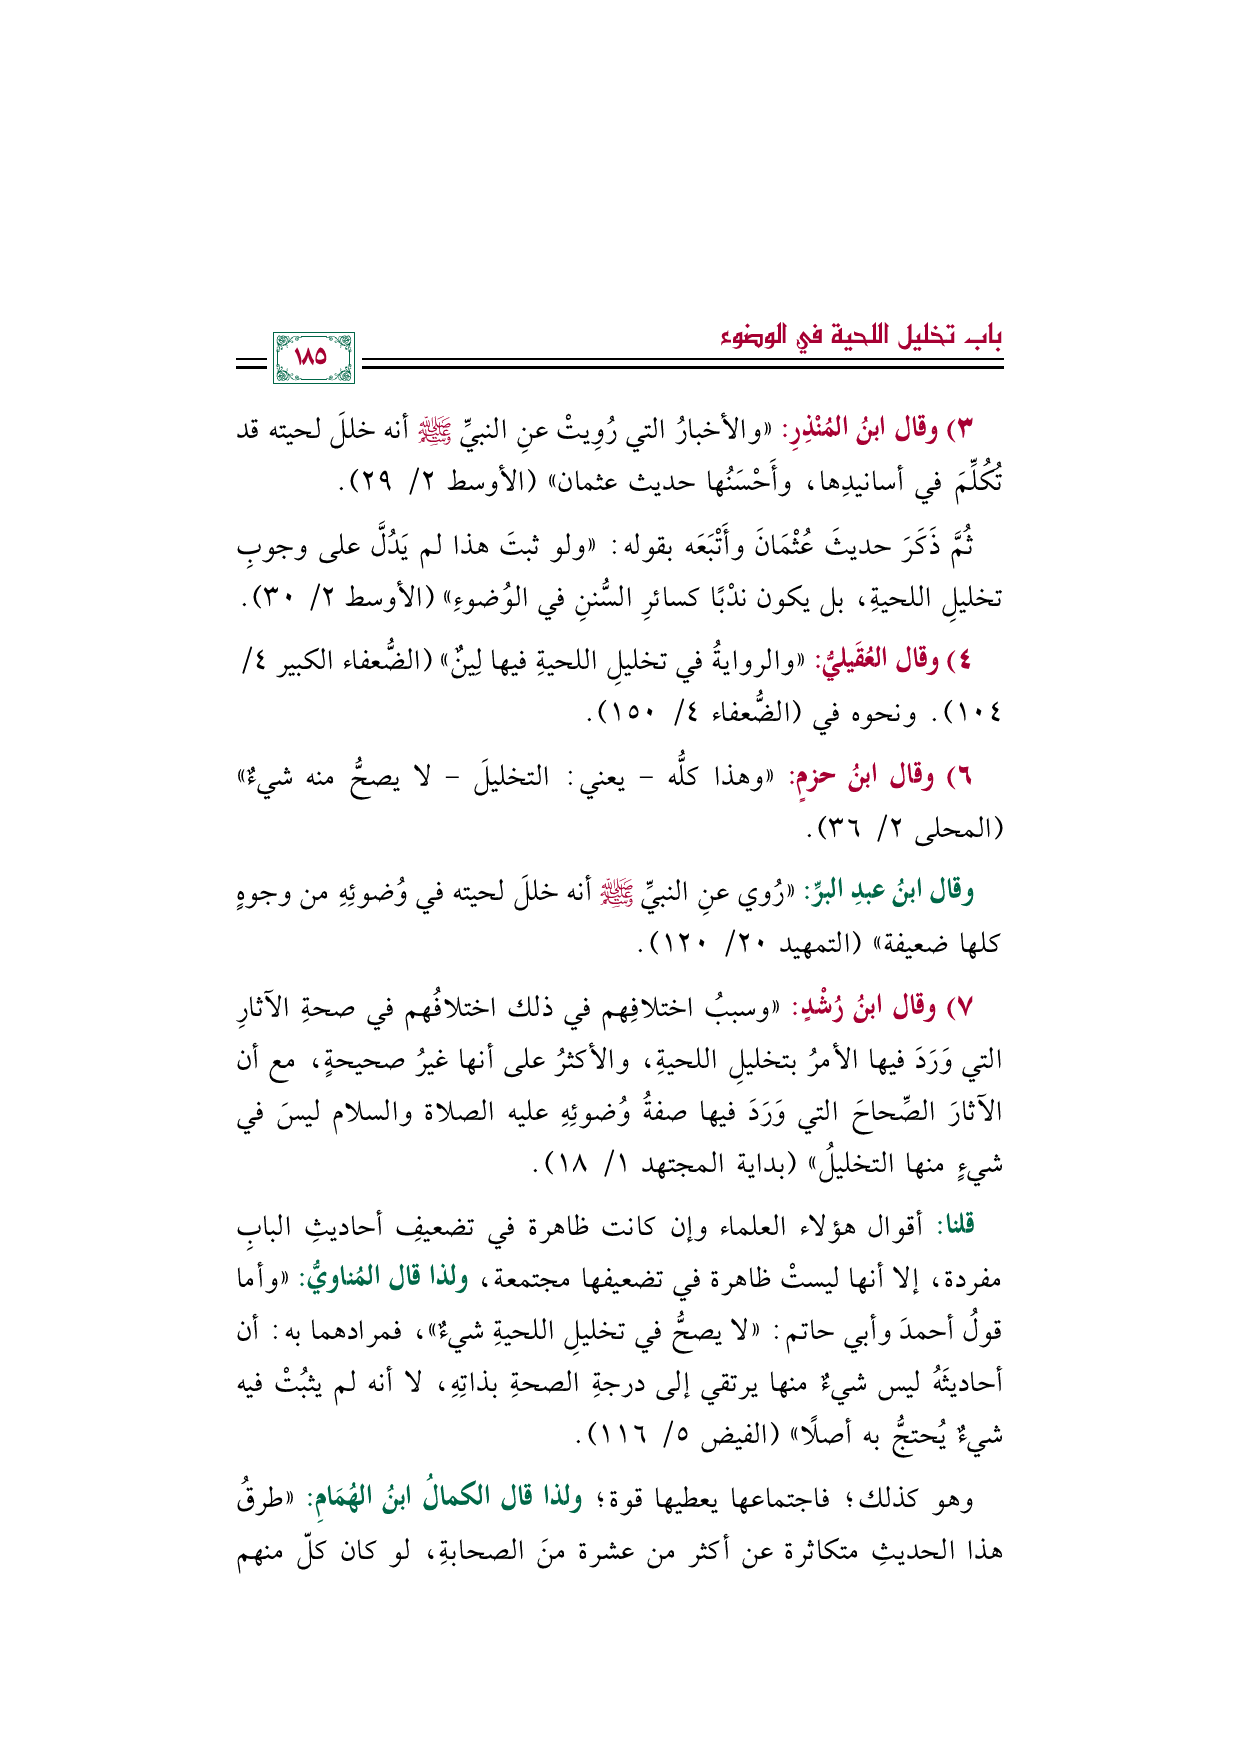 باب تخليل اللحية في الوضوء
١٨٥
٣) وقال ابنُ المُنْذِرِ: «والأخبارُ التي رُوِيتْ عنِ النبيِّ ﷺ أنه خللَ لحيته قد
تُكُلِّمَ في أسانيدِها، وأَحْسَنُها حديث عثمان» (الأوسط ٢/ ٢٩).
ثُمَّ ذَكَرَ حديثَ عُثْمَانَ وأَتْبَعَه بقوله: «ولو ثبتَ هذا لم يَدُلَّ على وجوبِ
تخليلِ اللحيةِ، بل يكون ندْبًا كسائرِ السُّننِ في الوُضوءِ» (الأوسط ٢/ ٣٠).
٤) وقال العُقَيليُّ: «والروايةُ في تخليلِ اللحيةِ فيها لِينٌ» (الضُّعفاء الكبير ٤/
١٠٤). ونحوه في (الضُّعفاء ٤/ ١٥٠).
٦) وقال ابنُ حزمٍ: «وهذا كلُّه - يعني: التخليلَ - لا يصحُّ منه شيءٌ»
(المحلى ٢/ ٣٦).
وقال ابنُ عبدِ البرِّ: «رُوي عنِ النبيِّ ﷺ أنه خللَ لحيته في وُضوئِهِ من وجوهٍ
كلها ضعيفة» (التمهيد ٢٠/ ١٢٠).
٧) وقال ابنُ رُشْدٍ: «وسببُ اختلافِهم في ذلك اختلافُهم في صحةِ الآثارِ
التي وَرَدَ فيها الأمرُ بتخليلِ اللحيةِ، والأكثرُ على أنها غيرُ صحيحةٍ، مع أن
الآثارَ الصِّحاحَ التي وَرَدَ فيها صفةُ وُضوئِهِ عليه الصلاة والسلام ليسَ في
شيءٍ منها التخليلُ» (بداية المجتهد ١/ ١٨).
قلنا: أقوال هؤلاء العلماء وإن كانت ظاهرة في تضعيفِ أحاديثِ البابِ
مفردة، إلا أنها ليستْ ظاهرة في تضعيفها مجتمعة، ولذا قال المُناويُّ: «وأما
قولُ أحمدَ وأبي حاتم: «لا يصحُّ في تخليلِ اللحيةِ شيءٌ»، فمرادهما به: أن
أحاديثَهُ ليس شيءٌ منها يرتقي إلى درجةِ الصحةِ بذاتِهِ، لا أنه لم يثبُتْ فيه
شيءٌ يُحتجُّ به أصلًا» (الفيض ٥/ ١١٦).
وهو كذلك؛ فاجتماعها يعطيها قوة؛ ولذا قال الكمالُ ابنُ الهُمَامِ: «طرقُ
هذا الحديثِ متكاثرة عن أكثر من عشرة منَ الصحابةِ، لو كان كلّ منهم